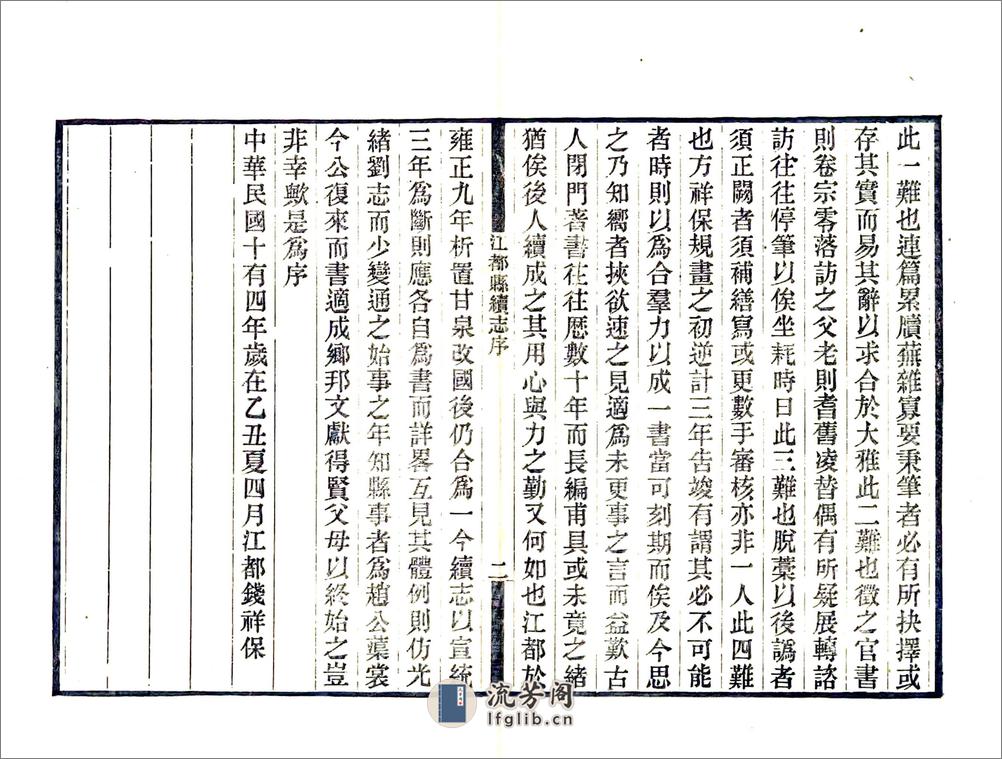 此一難也連篇累牘蕪雜寡要秉筆者必有所抉擇或
存其實而易其辭以求合於大雅此二難也徵之官書
則卷宗零落訪之父老則耆舊凌替偶有所疑展轉諮
訪往往停筆以俟坐耗時日此三難也脫藁以後譌者
須正闕者須補繕寫或更數手審核亦非一人此四難
也方祥保規畫之初逆計三年告竣有謂其必不可能
者時則以為合羣力以成一書當可刻期而俟及今思
之乃知嚮者挾欲速之見適為未更事之言而益歎古
人閉門著書往往厯數十年而長編甫具或未竟之緒
猶俟後人續成之其用心與力之勤又何如也江都於
江都縣續志序
二
雍正九年析置甘泉改國後仍合為一今續志以宣統
三年為斷則應各自為書而詳畧互見其體例則仿光
緒劉志而少變通之始事之年知縣事者為趙公葉裳
今公復來而書適成鄉邦文獻得賢父母以終始之豈
非幸歟是為序
中華民國十有四年歲在乙丑夏四月江都錢祥保
流芳阁
lfglib.cn